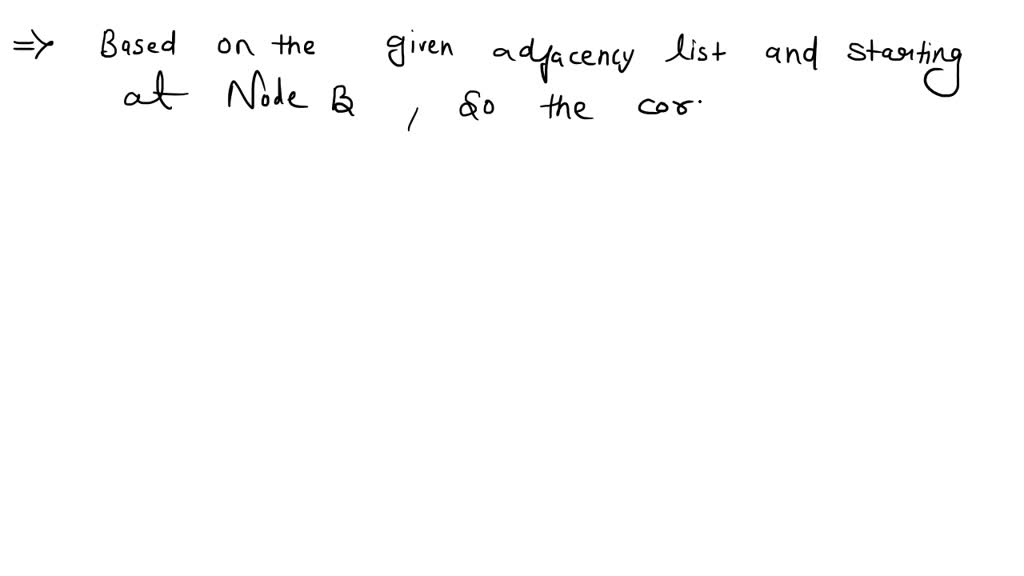 => Based on the given adjacency list and starting
at Node B, So the cor.